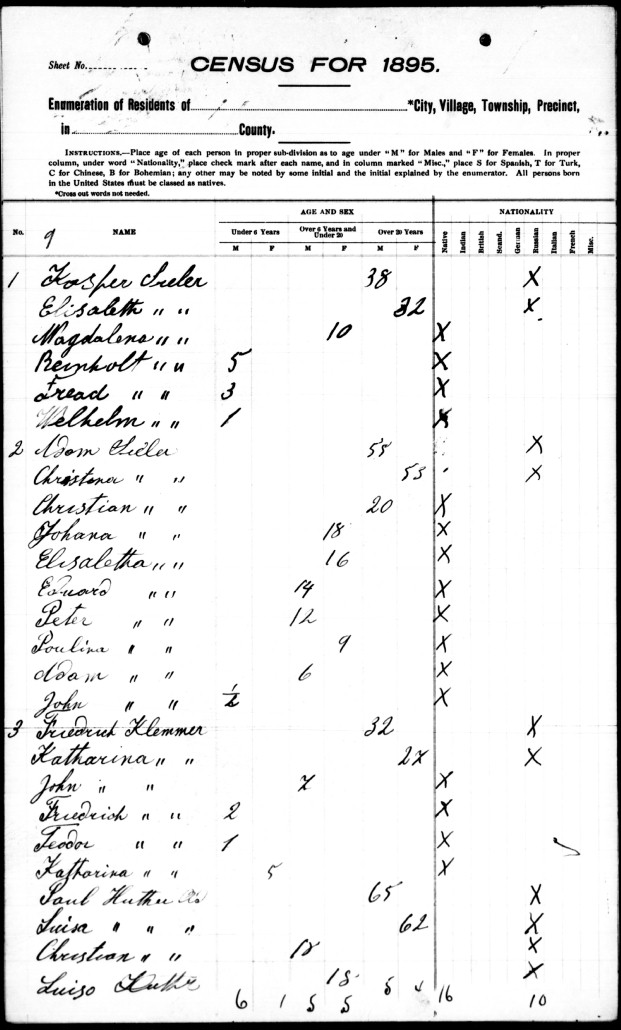 Sheet No.
CENSUS FOR 1895.
Enumeration of Residents of *City, Village, Township, Precinct,
in County.
INSTRUCTIONS.—Place age of each person in proper sub-division as to age under "M" for Males and "F" for Females. In proper
column, under word "Nationality," place check mark after each name, and in column marked "Misc.," place S for Spanish, T for Turk,
C for Chinese, B for Bohemian; any other may be noted by some initial and the initial explained by the enumerator. All persons born
in the United States must be classed as natives.
*Cross out words not needed.
AGE AND SEX NATIONALITY
No. 9 NAME Under 6 Years Over 6 Years and Under 20 Over 20 Years Native Indian British Scand. German Russian Italian French Misc.
M F M F M F
1 Kosper Sieler 38 X
Elisabeth " " 32 X
Magdalena " " 10 X
Reinholt " " 5 X
Fread " " 3 X
Welhelm " " 1 X
2 Adam Sieler 55 X
Christena " " 53 X
Christian " " 20 X
Johana " " 18 X
Elisaletha " " 16 X
Eduard " " 14 X
Peter " " 12 X
Poulina " " 9 X
Adam " " 6 X
John " " 1/2 X
3 Friedrich Klemmer 32 X
Katharina " " 27 X
John " " 7 X
Friedrich " " 2 X
Teodor " " 1 X
Katharina " " 5 X
Paul Huther 65 X
Luisa " " " 62 X
Christian " " 18 X
Luiso Huther 18 X
6 1 5 5 5 4 16 10